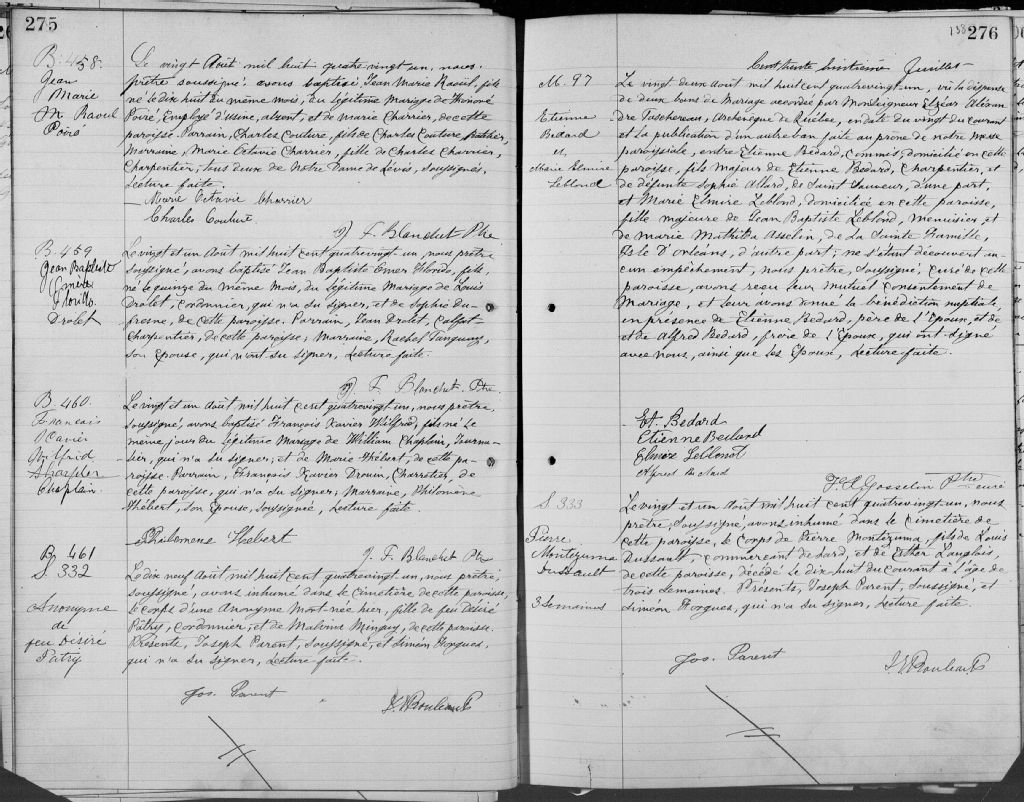 275
B. 458.
Jean
Marie
Raoul
Poiré
Le vingt Août mil huit quatre vingt un, nous
prêtre soussigné avons baptisé Jean Marie Raoül, fils
né le dix huit du même mois, du légitime Mariage de Honoré
Poiré, Employé d'usine, absent, et de Marie Charrier, de cette
paroisse. Parrain, Charles Couture, fils de Charles Couture,
Marraine, Marie Octavie Charrier, fille de Charles Charrier,
Charpentier, tous deux de Notre Dame de Lévis, soussignés,
Lecture faite.
Marie Octavie Charrier
Charles Couture
J. F. Blanchet Ptre
B. 459
Jean Baptiste
Drolet
Le vingt et un Août mil huit cent quatrevingt un, nous prêtre
soussigné, avons baptisé Jean Baptiste fils,
né le quinze du même mois, du légitime Mariage de Louis
Drolet, cordonnier, qui n'a su signer, et de Sophie Du-
fresne, de cette paroisse. Parrain, Jean Drolet, Calfat-
Charpentier, de cette paroisse; Marraine, Rachel
son Epouse, qui n'ont su signer, Lecture faite.
J. F. Blanchet. Ptre
B. 460.
Francois
Xavier
Wilfrid
Chaplain
Le vingt et un Août mil huit cent quatrevingt un, nous prêtre,
soussigné, avons baptisé François Xavier Wilfrid, fils né le
même jour du légitime Mariage de William Chaplain, Journa-
lier, qui n'a su signer, et de Marie Hébert, de cette pa-
roisse. Parrain, François Xavier Drouin, Charretier, de
cette paroisse, qui n'a su signer; Marraine, Philomène
Hébert, son Epouse, soussignée, Lecture faite.
Philomene Hebert
J. F. Blanchet Ptre
B. 461
S. 332
Anonyme
de
feu Désiré
Patry
Le dix neuf Août mil huit cent quatrevingt un, nous prêtre,
soussigné, avons inhumé dans le cimetière de cette paroisse,
le corps d'une Anonyme mort-née hier, fille de feu Désiré
Patry, cordonnier, et de Malvina Minguy, de cette paroisse.
Présents, Joseph Parent, soussigné, et Siméon Gorgues,
qui n'a su signer, Lecture faite.
Jos. Parent
138
276
Cent trente huitième Juillet
M. 97
Etienne
Bedard
et
Marie Elmire
Leblond
Le vingt deux Août mil huit cent quatrevingt un, vu la dispense
de deux bans de Mariage accordée par Monseigneur Elzéar Alexan
dre Taschereau, Archevêque de Québec, en date du vingt du courant
et la publication d'un autre ban faite au prône de notre Messe
paroissiale, entre Etienne Bedard, Commis, domicilié en cette
paroisse, fils majeur de Etienne Bedard, Charpentier, et
de défunte Sophie Allard, de Saint Sauveur, d'une part,
et Marie Elmire Leblond, domiciliée en cette paroisse,
fille majeure de Jean Baptiste Leblond, menuisier, et
de Marie Mathilda Asselin, de La Sainte Famille,
Isle D'Orléans, d'autre part; ne s'étant découvert au-
cun empêchement, nous prêtre, soussigné, curé de cette
paroisse, avons reçu leur mutuel consentement de
Mariage, et leur avons donné la bénédiction nuptiale,
en présence de Etienne Bedard, père de l'Epoux, et de
et de Alfred Bedard, frère de l'Epoux, qui ont signé
avec nous, ainsi que les Epoux, Lecture faite.
Et. Bedard
Etienne Bedard
Elmire Leblond
Alfred Bedard
F. X. Gosselin Ptre
curé
S. 333
Pierre
Montezuma
Dussault
3 Semaines
Le vingt et un Août mil huit cent quatrevingt un, nous
prêtre, soussigné, avons inhumé dans le cimetière de
cette paroisse, le corps de Pierre Montezuma, fils de Louis
Dussault, commerçant de lard, et de Esther Langlois,
de cette paroisse, décédé le dix huit du courant à l'âge de
trois semaines. Présents, Joseph Parent, soussigné, et
Siméon Gorgues, qui n'a su signer, Lecture faite.
Jos. Parent